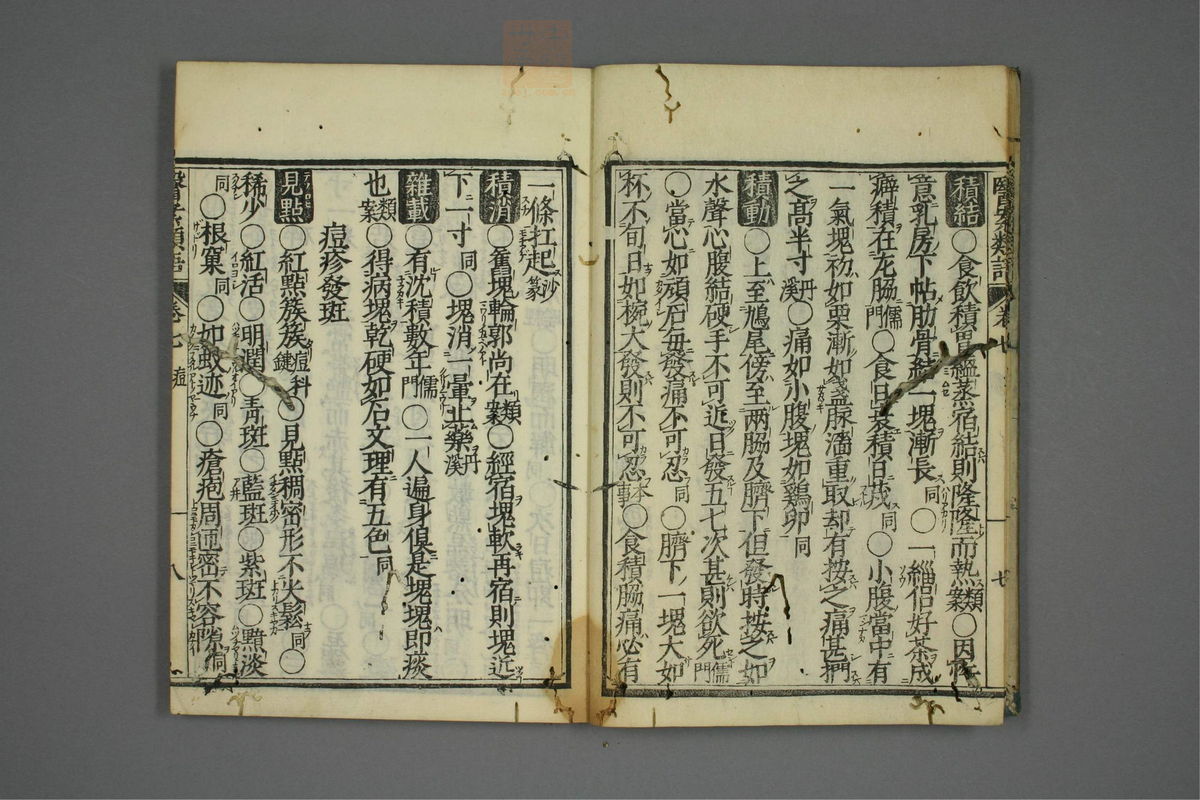 積結〇食飲積胃蘊蒸宿結則隆隆而熱類案〇因
意乳房下帖肋骨結一塊漸長同〇一緇侶好茶成
癖積在左脇儒門〇食日衰積日成同〇小腹當中有
一氣塊初如栗漸如盞脉濇重取却有按之痛甚捫
之髙半寸丹溪〇痛如小腹塊如鷄卵同
積動〇上至鳩尾傍至兩脇及臍下但發時按之如
水聲心腹結硬手不可近日發五七次甚則欲死儒門
〇當心如頑石毎發痛不可忍同〇臍下一塊大如
杯不旬日如椀大發則不可忍本事〇食積脇痛必有
一條扛起沙篆
積消〇舊塊輪郭尚在類案〇經宿塊軟再宿則塊近
下一寸同〇塊消一暈止藥丹溪
雜載〇有沈積數年儒門〇一人遍身俱是塊塊即痰
也類案〇得病塊乾硬如石文理有五色同
痘疹發斑
見點〇紅點簇簇痘科鍵〇見點稠密形不尖鬆同〇
稀少〇紅活〇明潤〇靑斑〇藍斑〇紫斑〇黯淡
同〇根窠同〇如蚊迹同〇瘡疱周匝密不容隙同
卷七 痘
八
七